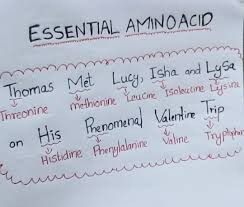 ESSENTIAL AMINOACID
Thomas Met Lucy, Isha and Lysa
Threonine methionine Leucine Isoleucine Lysine
on His Phenomenal Valentine Trip
Histidine Phenylalanine Valine Tryptophan